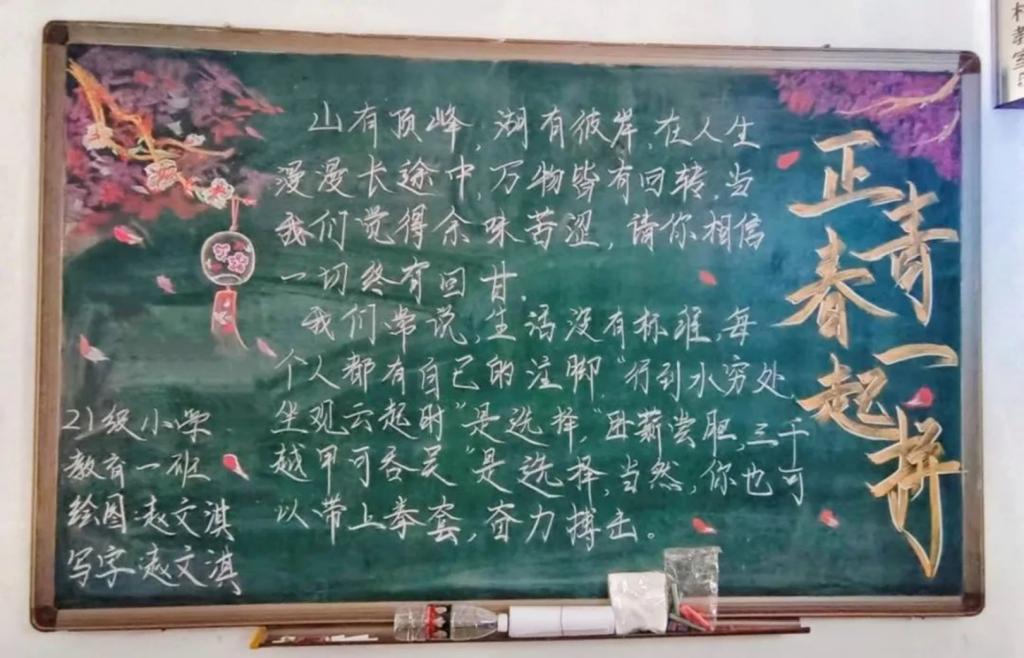 山有顶峰,湖有彼岸,在人生
漫漫长途中,万物皆有回转,当
我们觉得余味苦涩,请你相信
一切终有回甘.
我们常说,生活没有标准,每
个人都有自己的注脚"行到水穷处,
坐观云起时"是选择,"卧薪尝胆,三千
越甲可吞吴"是选择,当然,你也可
以带上拳套,奋力搏击。
正青春一起拼
21级小学
教育一班
绘图:赵文淇
写字:赵文淇
教室